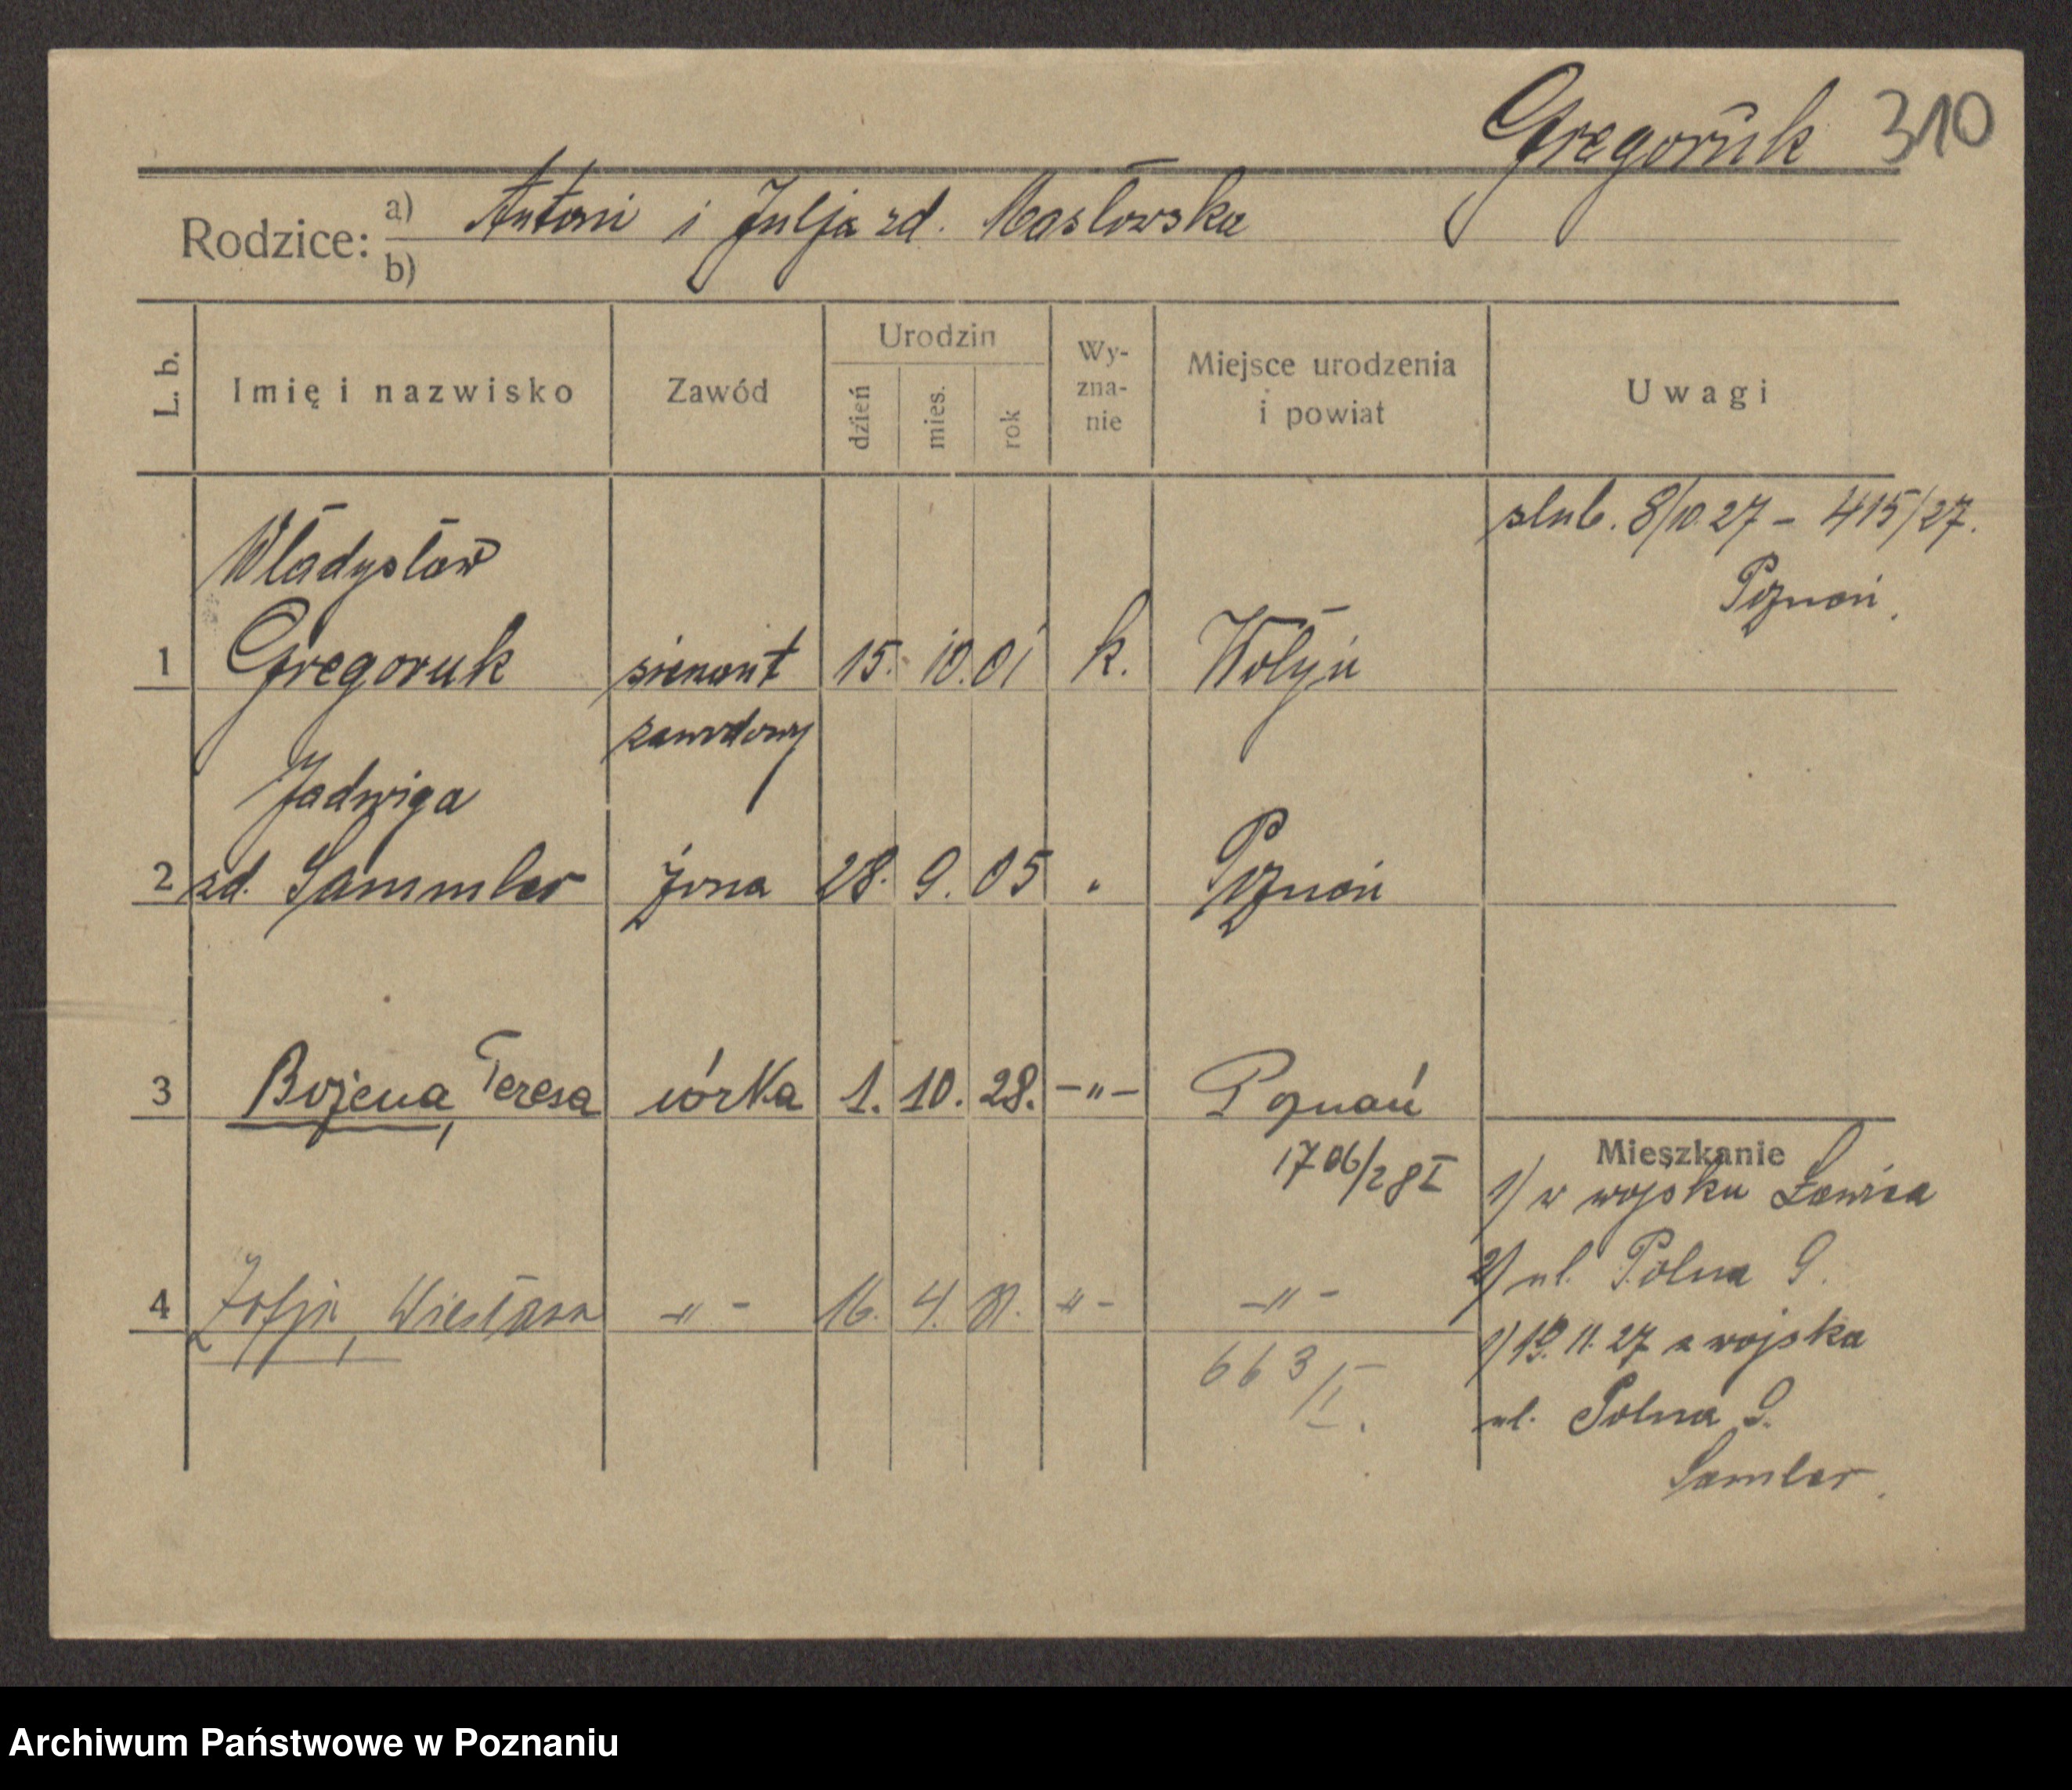 Gregoruk 310
Rodzice: a) Antoni i Julja zd. Masłowska
b)
L. b. Imię i nazwisko Zawód Urodzin dzień mies. rok Wy-zna-nie Miejsce urodzenia i powiat Uwagi
slub. 8/10 27 - 415/27.
Poznań.
Władysław
1 Gregoruk 15. 10. 01 k. Wołyń
zawodowy
Jadwiga
2 zd. Sammler żona 28. 9. 05 " Poznań
3 Bożena, Teresa córka 1. 10. 28. -"- Poznań
1706/28 I
Mieszkanie
1/ w wojsku Ławica
2/ ul. Polna 9.
4 Zofja, Wiesława -"- 16. 4. 31. -"- -"-
19. 11. 27 z wojska
663/I.
ul. Polna 9.
Samler.
Archiwum Państwowe w Poznaniu